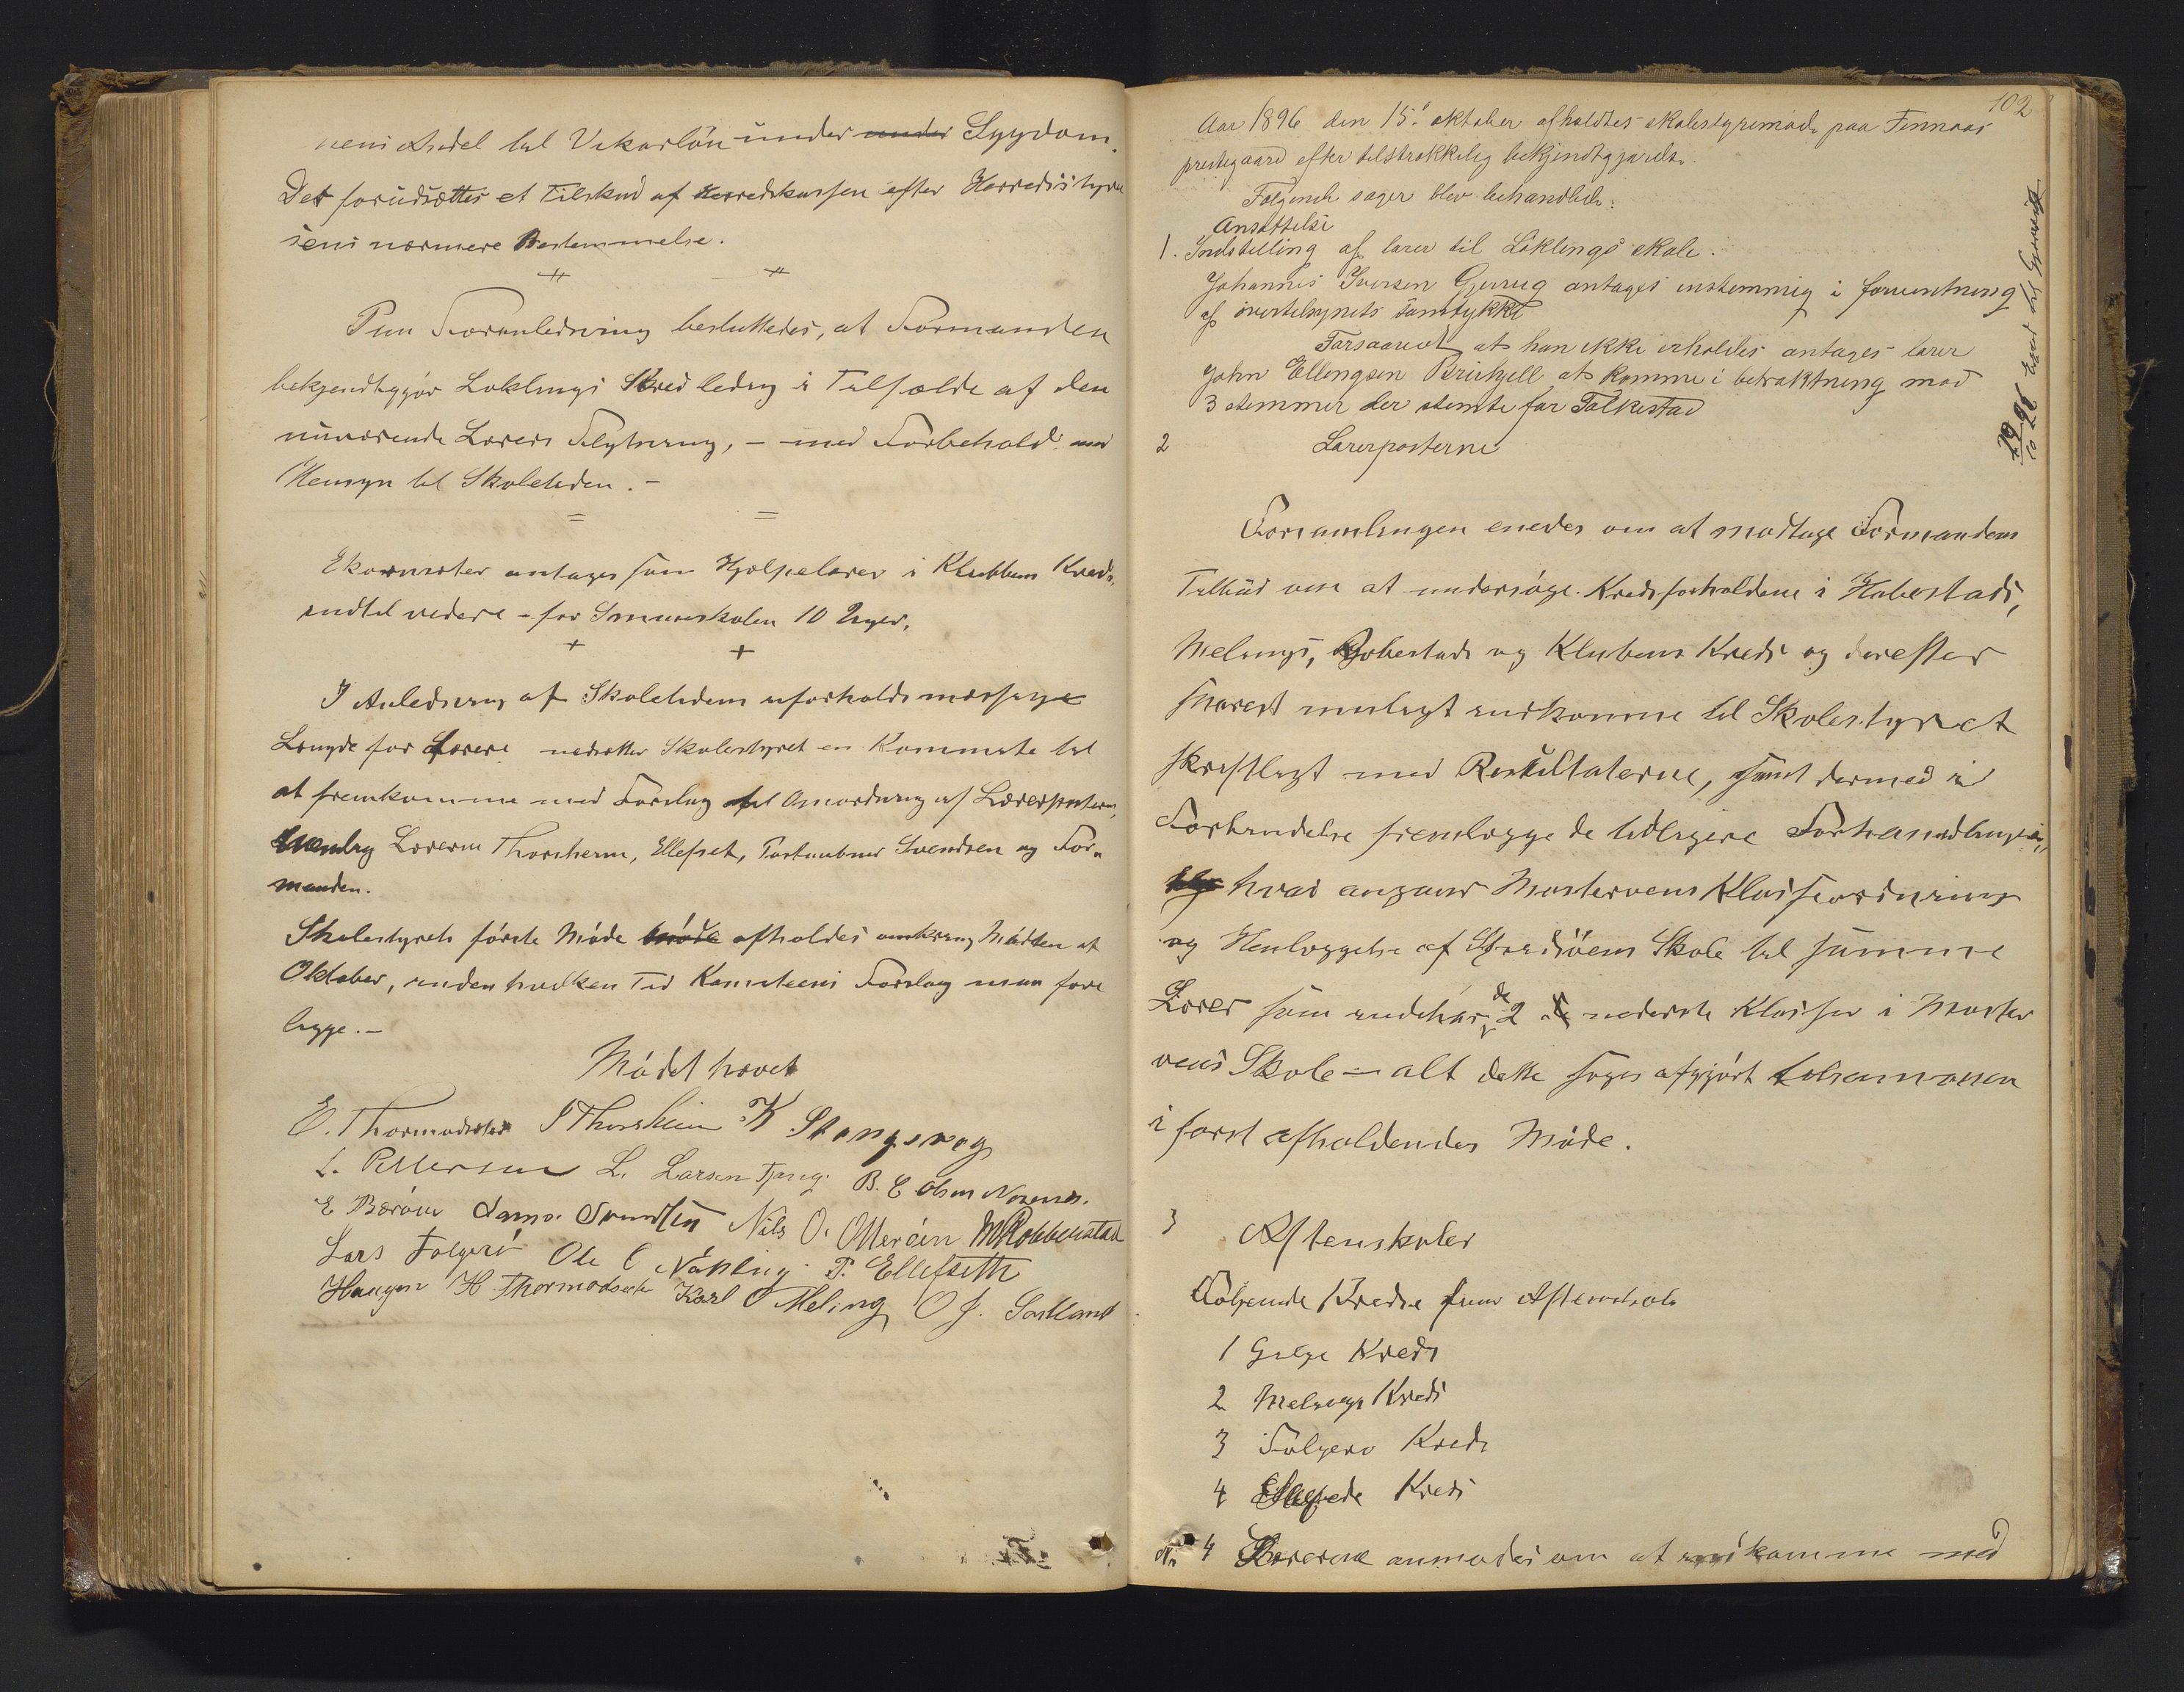 sens Andel til Vikarløn under under Sygdom.
Det forudsættes et Tilskud af Herredskassen efter Herredssty
sens nærmere Bestemmelse.
Paa Foranledning besluttedes, at Formanden
bekjendtgjør Løklings Kreds ledig i Tilfælde af den
nuværende Lærers Flytning, – med Forbehold med
Hensyn til Skoletiden. –
antages som Hjælpelærer i Klubbens Kreds,
indtil videre – for Smaaskolen 10 Uger.
I Anledning af Skoletidens uforholdsmæssige
Længde for Lærere nedsætter Skolestyret en Kommite til
at fremkomme med Forslag til Omordning af Lærerposterne,
nemlig Lærerne Thorsheim, Ellefset, Svendsen og For-
manden.
Skolestyrets første Møde møde afholdes omkring Midten af
Oktober, inden hvilken Tid Komiteens Forslag maa fore
ligge. –
Mødet hævet
E. Thormodsæter J Thorsheim K Stangervag
L. Pettersen L. Larsen Tjong. B. E Olsen
E Bærøen Svendsen Nils O. Otterøen M Robberstad
Lars Folgerø Ole C Nøkling P. Ellefseth
Haugen H. Thormodsæter Karl O Meling O J. Sortland
102
Aar 1896 den 15. oktober afholdtes skolestyremøde paa Finnaas
prestegaard efter tilstrækkelig bekjendtgjørelse.
Følgende sager blev behandlede:
Ansættelse
1. Indstilling af lærer til Løklings skole.
Johannes Iversen Gjerrug antages enstemmig i forventning
af overtilsynets samtykke
Forsaavidt at han ikke erholdes antages lærer
John Ellingsen at komme i betraktning mod
3 stemmer der stemte for Folkestad
2 Lærerposterne
Forsamlingen enedes om at modtage Formandens
Tilbud om at undersøge Kredsforholdene i Habestads,
Melings, og Klubens Kreds og derefter
snarest muligt indkomme til Skolestyret
skriftligt med Resultaterne, samt dermed i
Forbindelse fremlægge de tidligere Forhandlinger
hvad angaar Mosterøens Klasseordning
og Henlæggelse af Skole til samme
Lærer som indehar de 2 nederste Klasser i Moster
øens Skole – alt dette søges afgjort
i først afholdendes Møde.
3 Aftenskoler
Følgende Kredse faar Aftenskole
1 Kreds
2 Melings Kreds
3 Folgerø Kreds
4 Kreds
No 4 Lærerne anmodes om at indkomme med